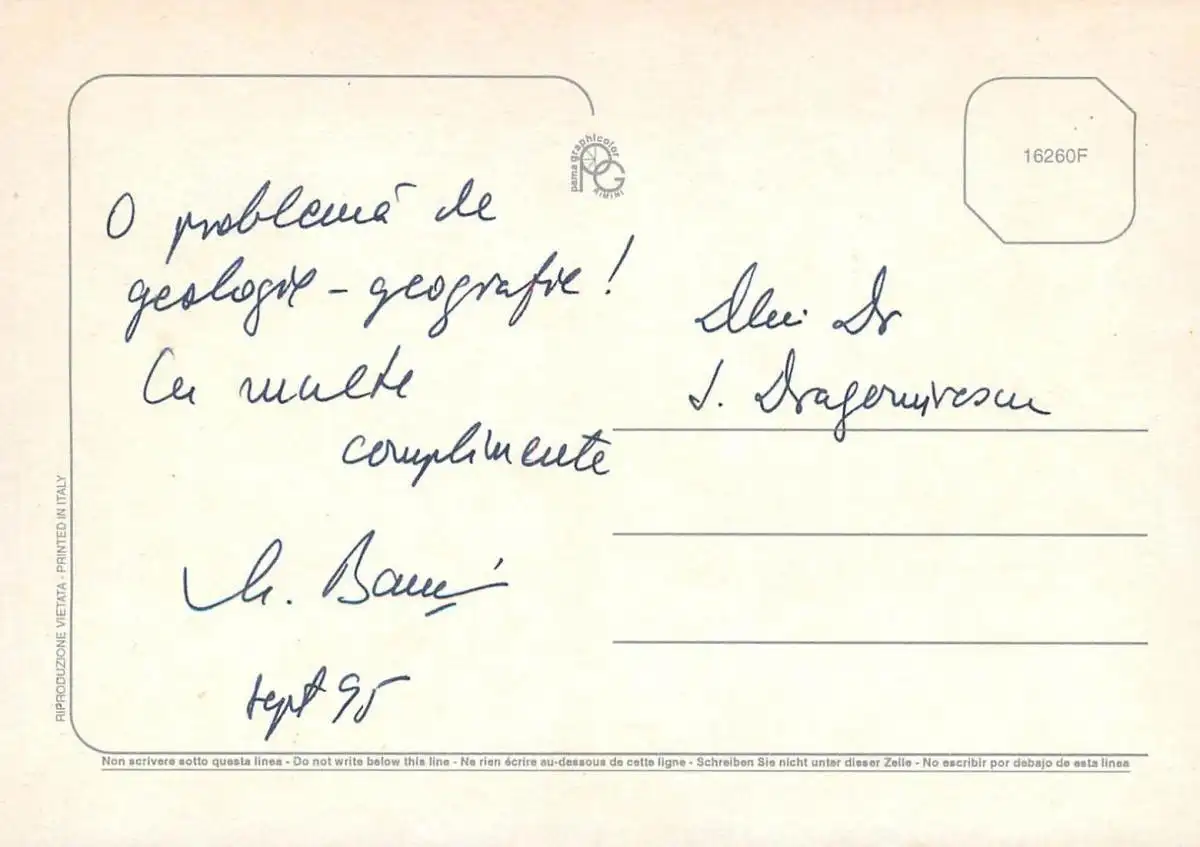 O problemă de
geologie - geografie!
Cu multe
complimente
sept 95
pama graphicolor
PG
RIMINI
16260F
Dlui Dr
J. Dragomirescu
RIPRODUZIONE VIETATA - PRINTED IN ITALY
Non scrivere sotto questa linea - Do not write below this line - Ne rien écrire au-dessous de cette ligne - Schreiben Sie nicht unter dieser Zeile - No escribir por debajo de esta linea